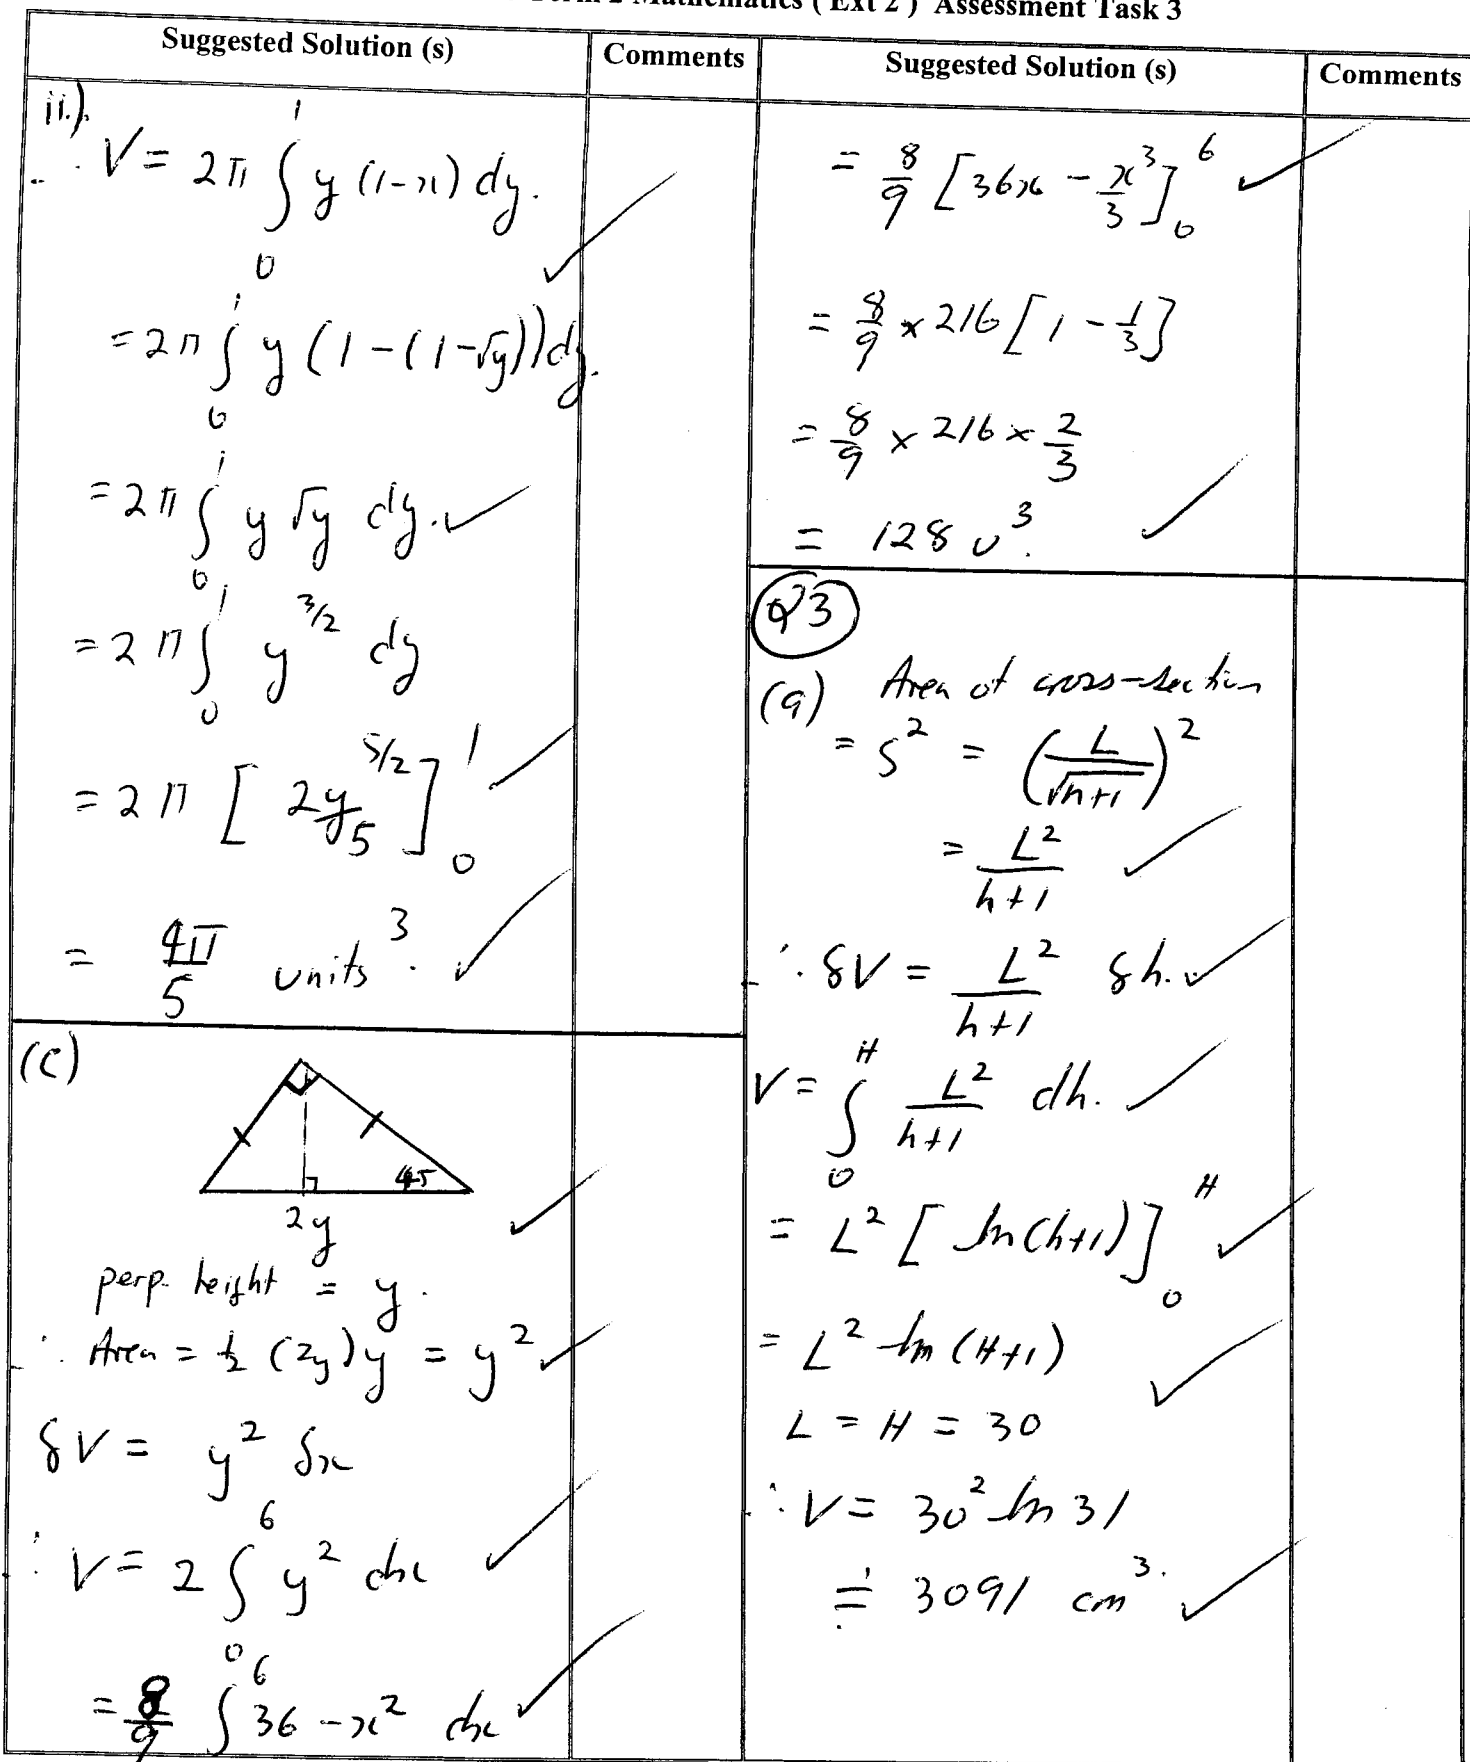 Mathematics ( Ext 2 ) Assessment Task 3
Suggested Solution (s) Comments Suggested Solution (s) Comments
ii.)
∴ V = 2π ∫₀¹ y (1-x) dy. ✓
= 2π ∫₀¹ y (1-(1-√y)) dy.
= 2π ∫₀¹ y √y dy. ✓
= 2π ∫₀¹ y^(3/2) dy
= 2π [ 2y^(5/2)/5 ]₀¹ ✓
= 4π/5 units³. ✓
(c)
45
2y ✓
perp. height = y.
∴ Area = ½ (2y) y = y² ✓
δV = y² δx
∴ V = 2 ∫₀⁶ y² dx ✓
= 8/9 ∫₀⁶ 36 - x² dx ✓
= 8/9 [ 36x - x³/3 ]₀⁶ ✓
= 8/9 × 216 [ 1 - 1/3 ]
= 8/9 × 216 × 2/3
= 128 u³. ✓
Q3
(a) Area of cross-section
= s² = ( L/√(h+1) )²
= L²/(h+1) ✓
∴ δV = L²/(h+1) δh. ✓
V = ∫₀ᴴ L²/(h+1) dh. ✓
= L² [ ln(h+1) ]₀ᴴ ✓
= L² ln (H+1) ✓
L = H = 30
∴ V = 30² ln 31
≑ 3091 cm³. ✓